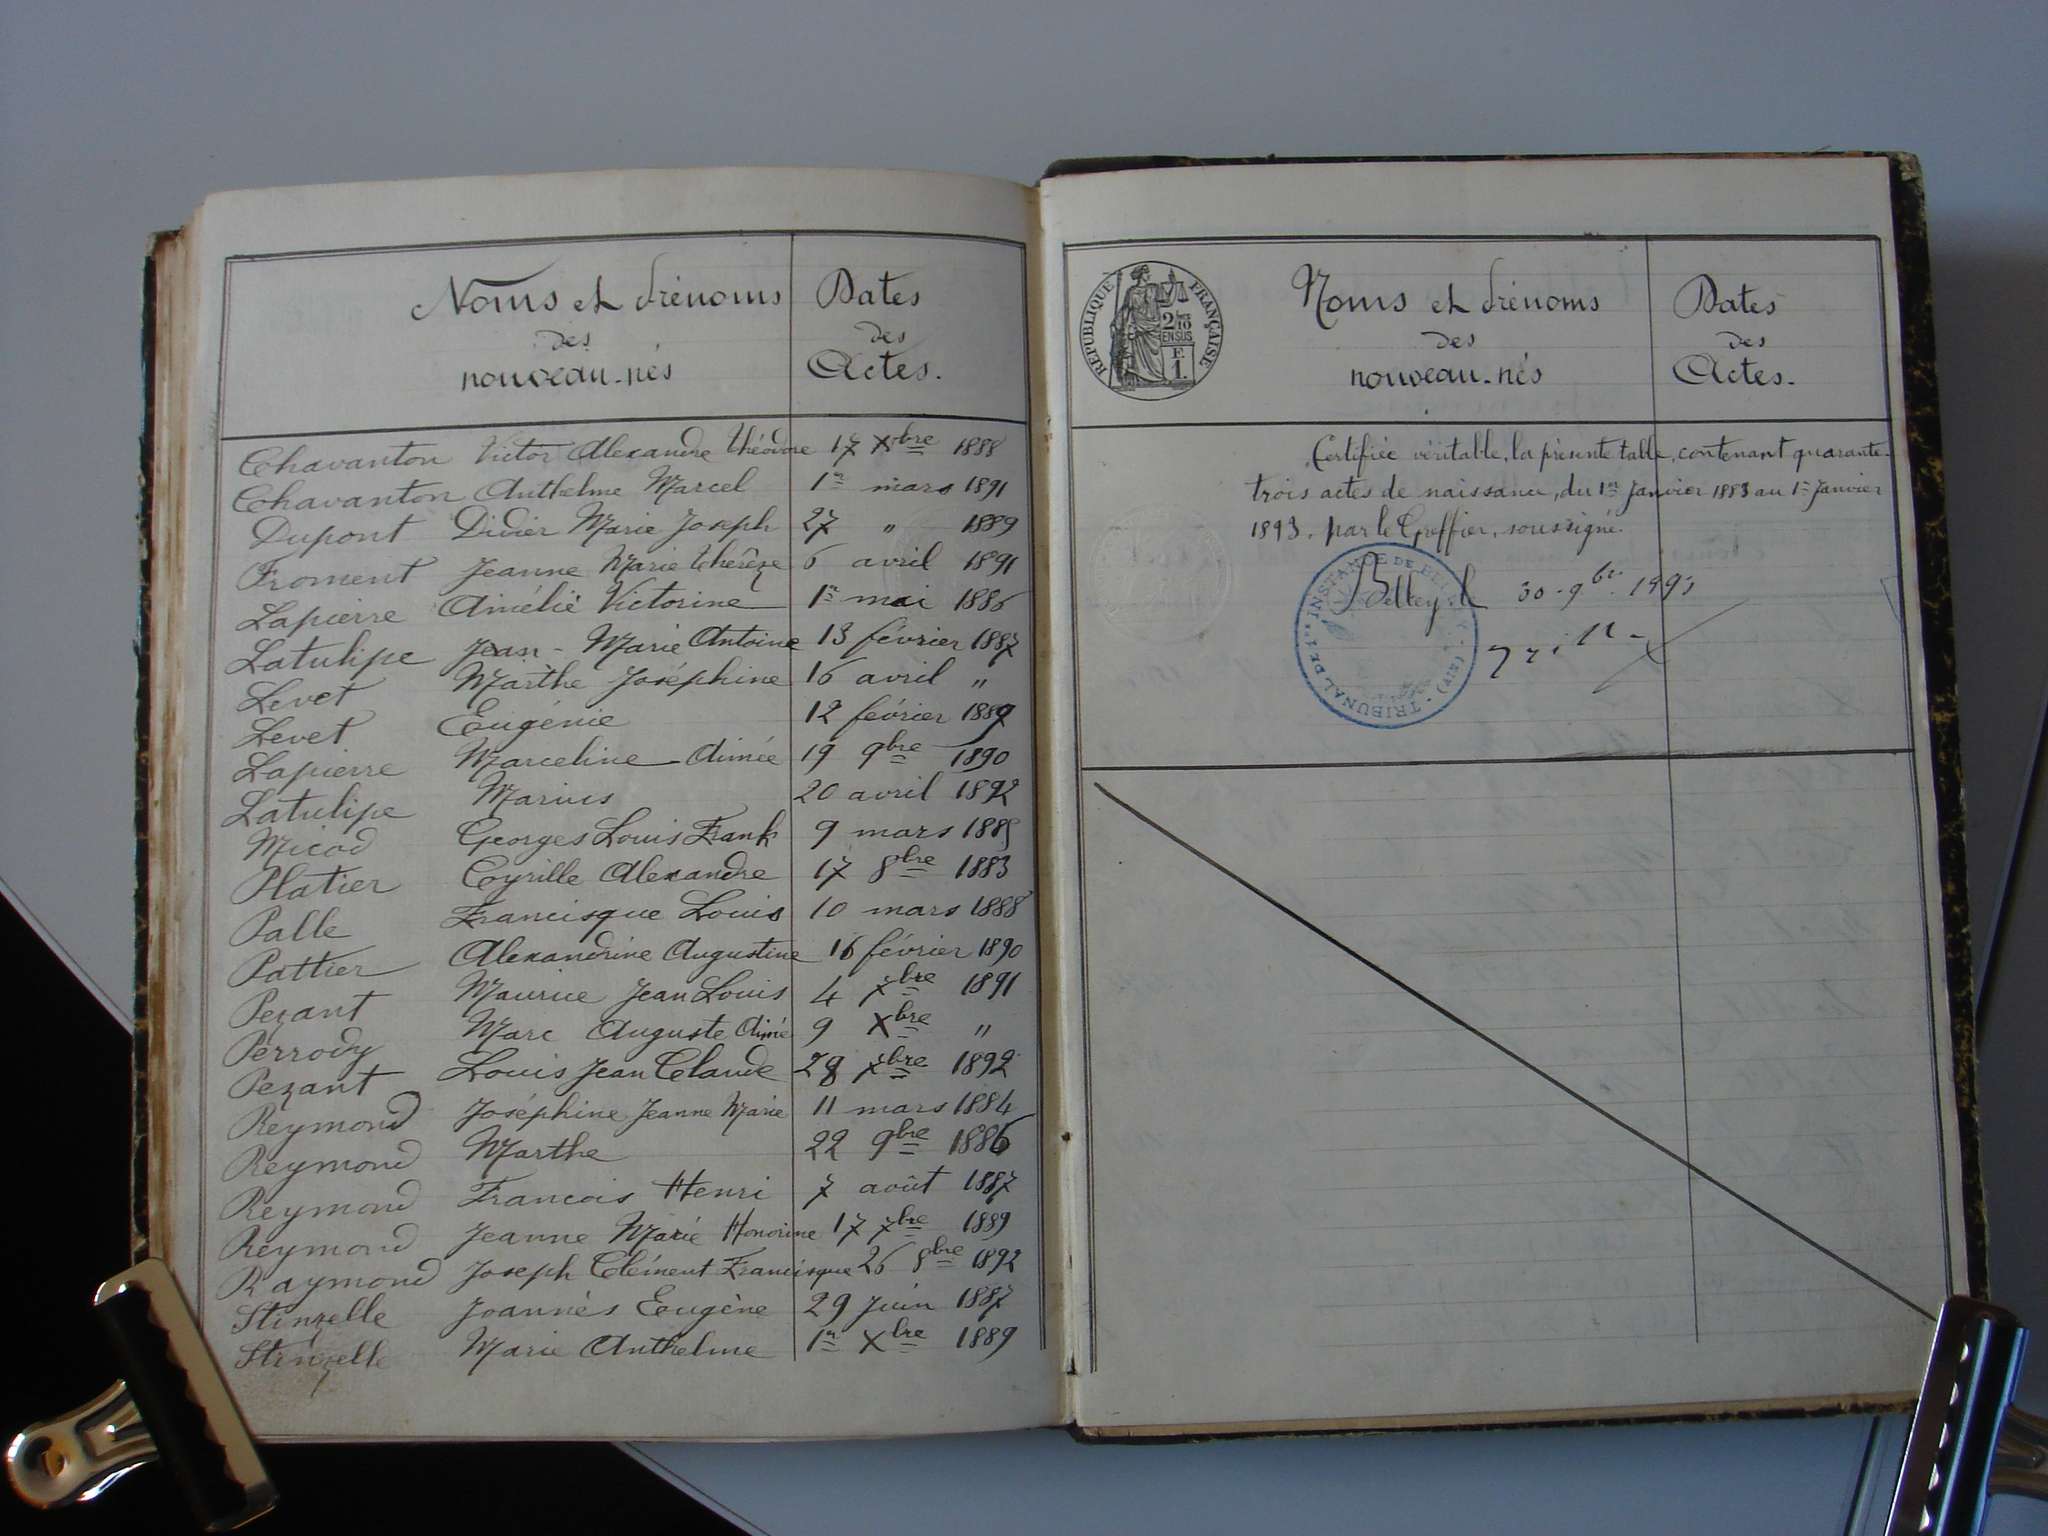 Noms et Prénoms
des
nouveau-nés
Dates
des
Actes.
Chavanton Victor Alexandre Théodore 17 Xbre 1888
Chavanton Anthelme Marcel 1er mars 1891
Dupont Didier Marie Joseph 27 " 1889
Froment Jeanne Marie Thérèze 6 avril 1891
Lapierre Amélie Victorine 1er mai 1886
Latulipe Jean-Marie Antoine 13 février 1887
Levet Marthe Joséphine 16 avril "
Levet Eugénie 12 février 1889
Lapierre Marceline Aimée 19 9bre 1890
Latulipe Marius 20 avril 1892
Micod Georges Louis Frank 9 mars
Platier Cyrille Alexandre 17 8bre 1883
Palle Francisque Louis 10 mars 1888
Pattier Alexandrine Augustine 16 février 1890
Pezant Maurice Jean Louis 4 7bre 1891
Perrody Marc Auguste Aimé 9 Xbre "
Pezant Louis Jean Claude 28 7bre 1892
Reymond Joséphine Jeanne Marie 11 mars 1884
Reymond Marthe 22 9bre 1886
Reymond Francois Henri 7 août 1887
Reymond Jeanne Marie Honorine 17 7bre 1889
Raymond Joseph Clément Francisque 26 8bre 1892
Stinzelle Joannès Eugène 29 Juin 1887
Stinzelle Marie Anthelme 1er Xbre 1889
RÉPUBLIQUE FRANÇAISE
2/10
EN SUS
F.
1.
Noms et Prénoms
des
nouveau-nés
Dates
des
Actes.
Certifiée véritable, la présente table, contenant quarante-
trois actes de naissance, du 1er Janvier 1883 au 1er Janvier
1893, par le Greffier, soussigné.
Belley, le 30 9bre 1893
TRIBUNAL DE 1re INSTANCE DE BELLEY (AIN)